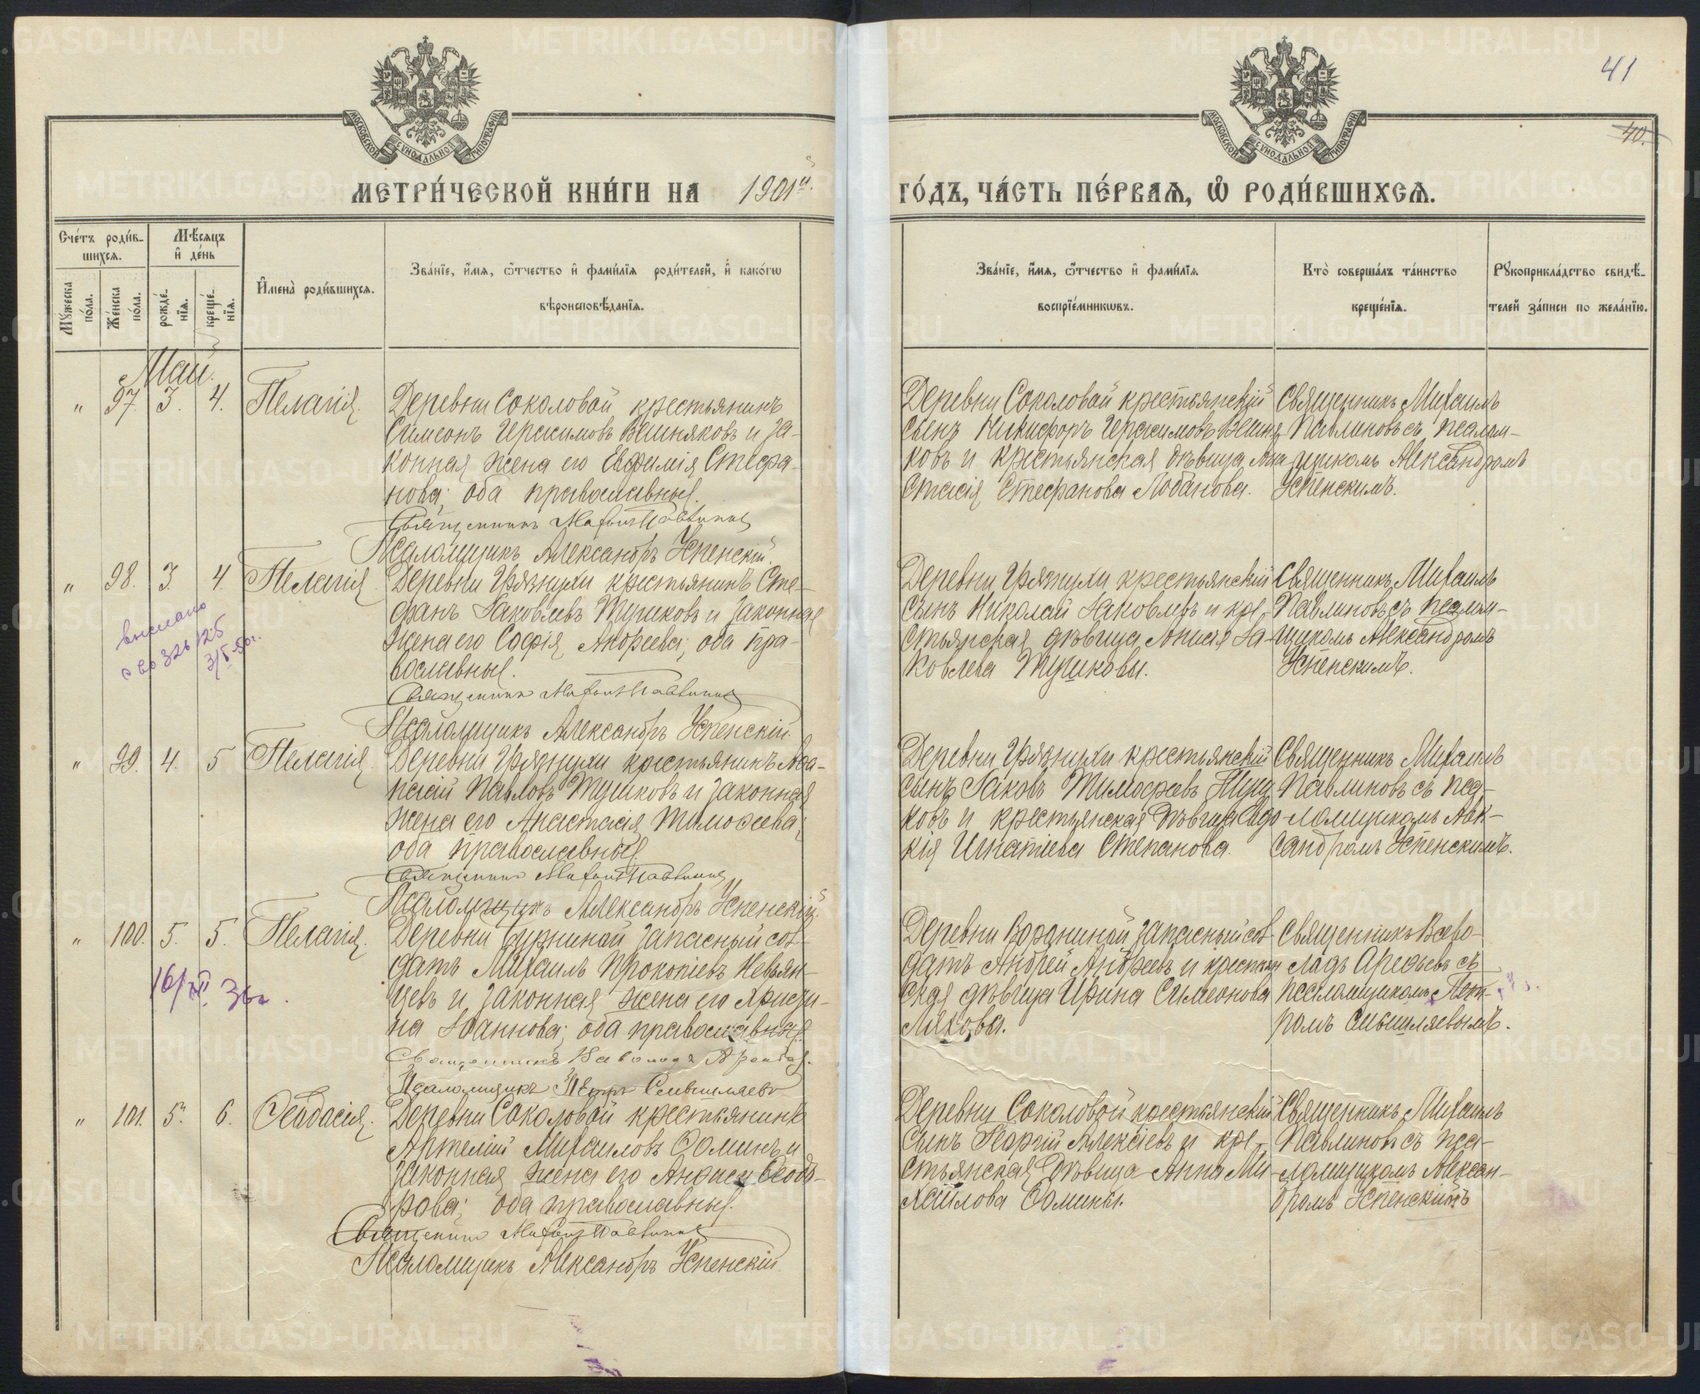 41
40.
МОСКОВСКОЙ СѴНОДАЛЬНОЙ ТИПОГРАФІИ
МОСКОВСКОЙ СѴНОДАЛЬНОЙ ТИПОГРАФІИ
МЕТРИ́ЧЕСКОЙ КНИ́ГИ НА 1901й.
ГО́ДЪ, ЧА́СТЬ ПЕ́РВАѦ, Ѽ РОДИ́ВШИХСѦ.
Сче́тъ роди́в-
шихсѧ.
Му́жеска по́ла.
Же́нска по́ла.
Мѣ́сѧцъ
и҆ де́нь
рожде́-
нїѧ.
креще́-
нїѧ.
И҆мена̀ роди́вшихсѧ.
Зва́нїе, и҆́мѧ, ѻ҆́тчество и҆ фамі́лїѧ роди́телей, и҆ како́гѡ
вѣроисповѣ́данїѧ.
Зва́нїе, и҆́мѧ, ѻ҆́тчество и҆ фамі́лїѧ
воспрїе́мникѡвъ.
Кто̀ соверша́лъ та́инство
креще́нїѧ.
Рꙋкоприкла́дство свидѣ́-
телей за́писи по жела́нїю.
Май.
" 97. 3. 4. Пелагія.
Деревни Соколовой крестьянинъ
Симеонъ Герасимовъ Вешняковъ и за-
конная жена его Евфимія Стефа-
нова; оба православные.
Священникъ Михаилъ Павлиновъ
Псаломщикъ Александръ Успенскій.
Деревни Соколовой крестьянскій
сынъ Никифоръ Герасимовъ Вешня-
ковъ и крестьянская дѣвица Ана-
стасія Стефанова Лобанова.
Священникъ Михаилъ
Павлиновъ съ псалом-
щикомъ Александромъ
Успенскимъ.
" 98. 3. 4 Пелагія
выслано
3/V-50г.
Деревни Грязнухи крестьянинъ Сте-
фанъ Іаковлевъ Тушковъ и законная
жена его Софія Андреева; оба пра-
вославные.
Священникъ Михаилъ Павлиновъ
Псаломщикъ Александръ Успенскій.
Деревни Грязнухи крестьянскій
сынъ Николай Іаковлевъ и кре-
стьянская дѣвица Анисія Іа-
ковлева Тушковы.
Священникъ Михаилъ
Павлиновъ съ псалом-
щикомъ Александромъ
Успенскимъ.
" 99. 4. 5 Пелагія.
Деревни Грязнухи крестьянинъ Афа-
насій Павловъ Тушковъ и законная
жена его Анастасія Тимофеева;
оба православные
Священникъ Михаилъ Павлиновъ
Псаломщикъ Александръ Успенскій.
Деревни Грязнухи крестьянскій
сынъ Іаковъ Тимофеевъ Туш-
ковъ и крестьянская дѣвица Евдо-
кія Игнатіева Степанова.
Священникъ Михаилъ
Павлиновъ съ пса-
ломщикомъ Алек-
сандромъ Успенскимъ.
" 100. 5. 5. Пелагія.
16/XII 36г.
запасный сол-
датъ Михаилъ Прокопіевъ Невьян-
цевъ и законная жена его Христи-
на Іоаннова; оба православные.
Священникъ Всеволодъ Арефьев.
Псаломщикъ Петръ Сивилляевъ
запасный сол-
датъ Андрей Андреевъ и крестьян-
ская дѣвица Ирина Симеонова
Ляхова.
Священникъ Всево-
лодъ Арефьевъ съ
псаломщикомъ Пет-
ромъ Сивилляевымъ.
" 101. 5. 6. Ѳеодосія.
Деревни Соколовой крестьянинъ
Артемій Михаиловъ Ѳоминъ и
законная жена его Анфиса Ѳеодо-
рова; оба православные.
Священникъ Михаилъ Павлиновъ
Псаломщикъ Александръ Успенскій
Деревни Соколовой крестьянскій
сынъ Георгій Алексіевъ и кре-
стьянская дѣвица Анна Ми-
хайлова Ѳомины.
Священникъ Михаилъ
Павлиновъ съ пса-
ломщикомъ Алексан-
дромъ Успенскимъ
METRIKI.GASO-URAL.RU